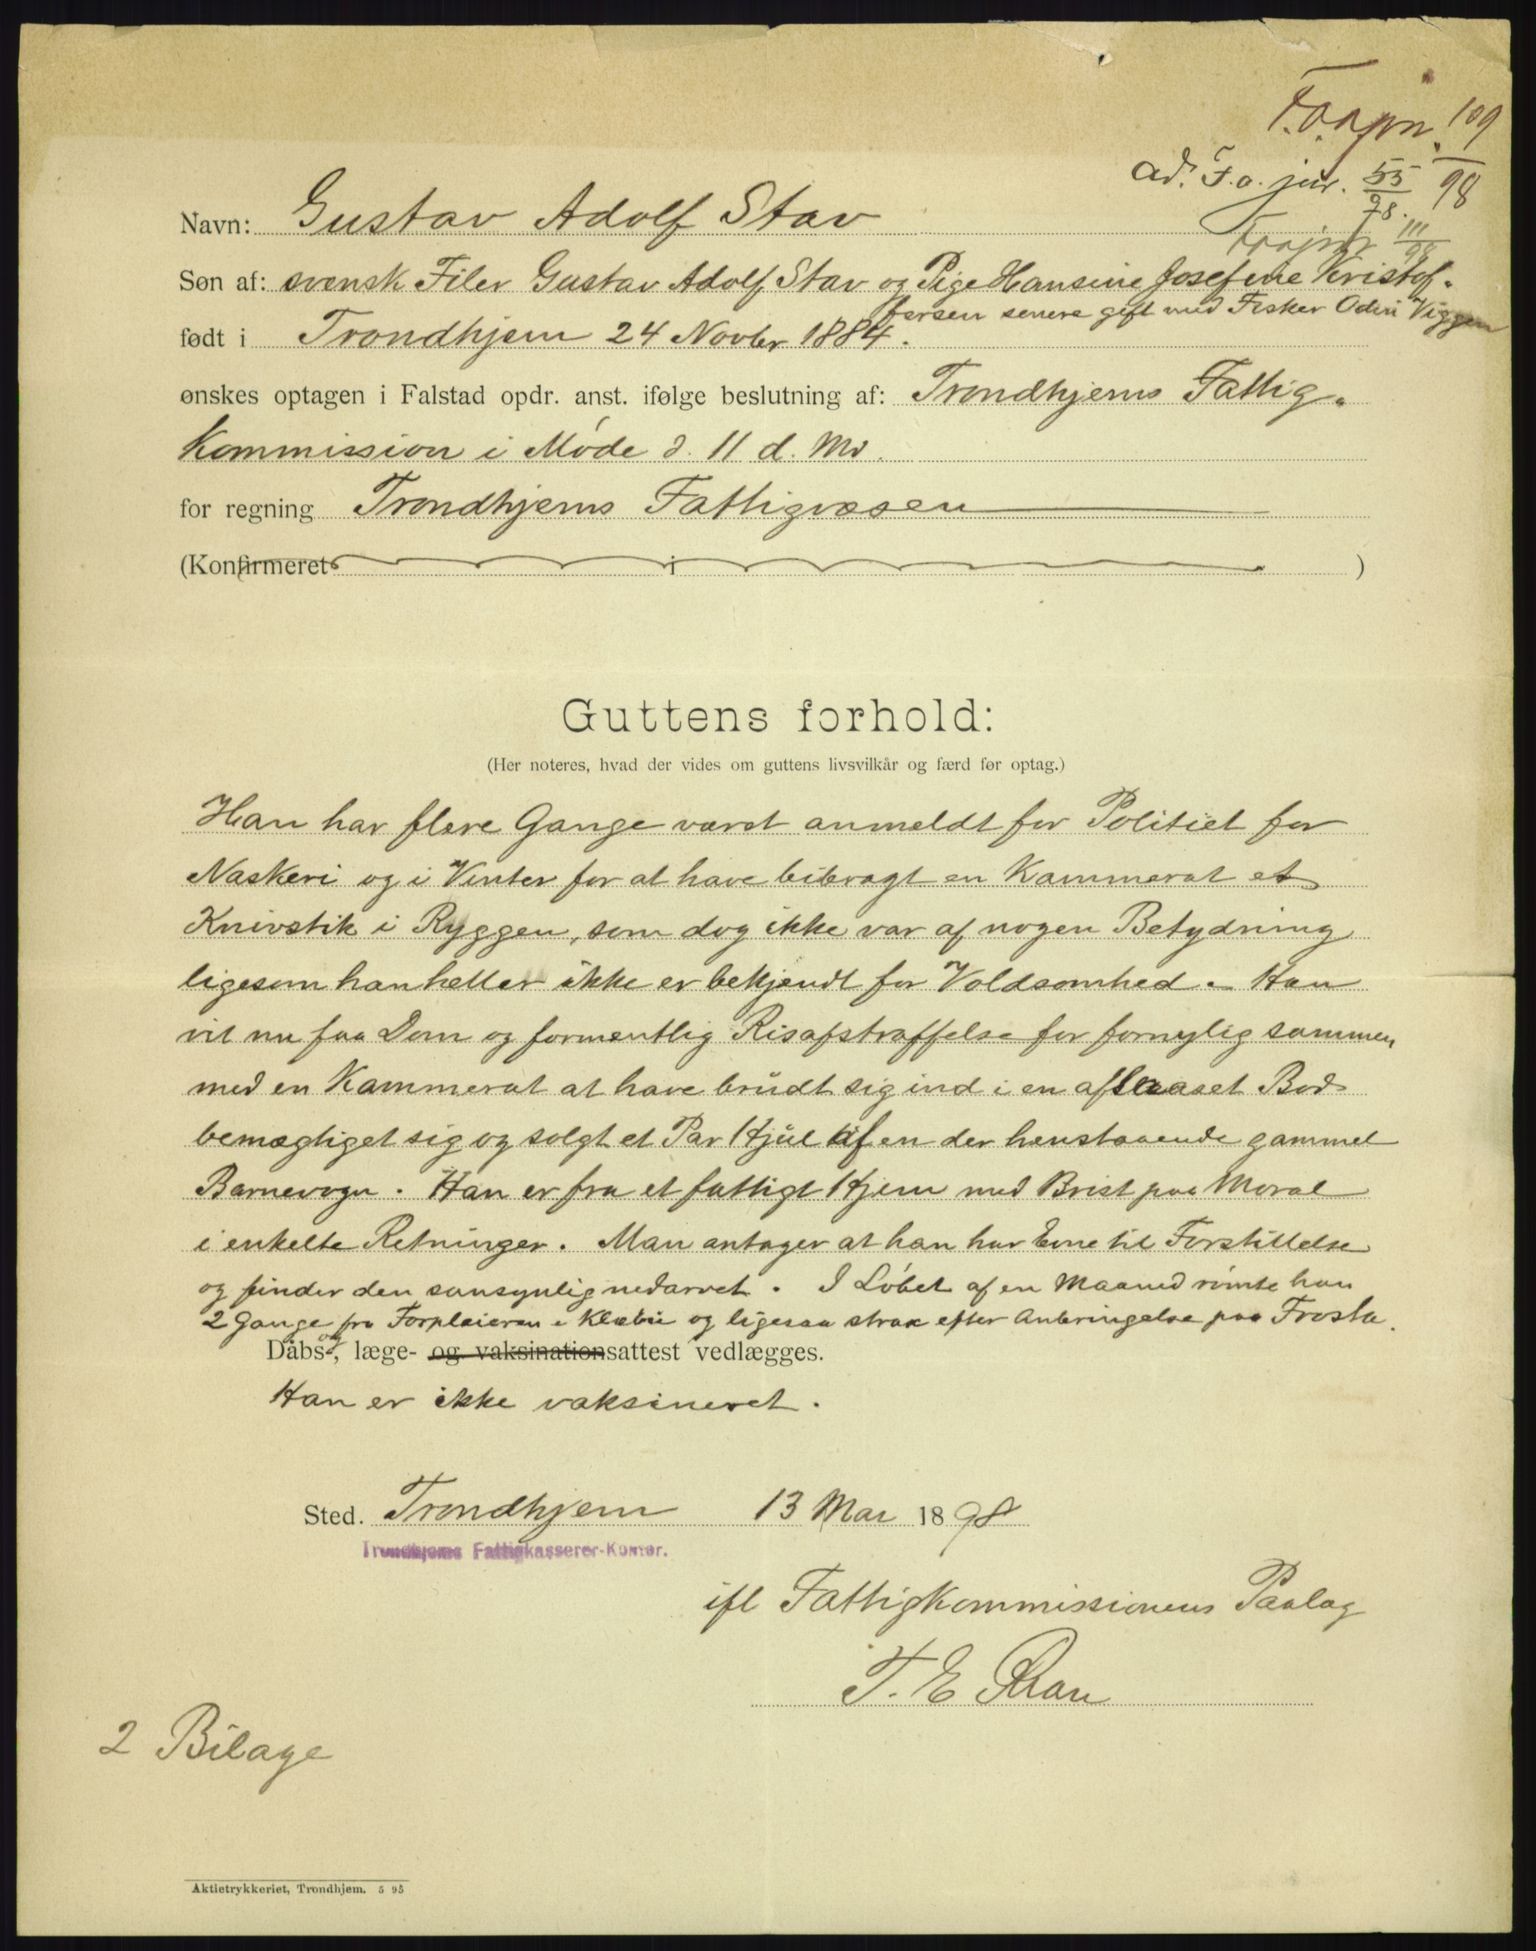 F.o.jrn. 109/98
ad. F.o. jur. 55/98.
F.o.jrn 111/98
Navn: Gustav Adolf Stav
Søn af: svensk Filer Gustav Adolf Stav og Pige Hansine Josefine Kristof-
fersen senere gift med Fisker Odin Viggen
født i Trondhjem 24 Novbr 1884.
ønskes optagen i Falstad opdr. anst. ifølge beslutning af: Trondhjems Fattig-
Kommission i Møde d. 11 d. Md.
for regning Trondhjems Fattigvæsen
(Konfirmeret i )
Guttens forhold:
(Her noteres, hvad der vides om guttens livsvilkår og færd før optag.)
Han har flere Gange været anmeldt for Politiet for
Naskeri og i Vinter for at have bibragt en Kammerat et
Knivstik i Ryggen, som dog ikke var af nogen Betydning
ligesom han heller ikke er bekjendt for Voldsomhed. – Han
vil nu faa Dom og formentlig Risafstraffelse for fornylig sammen
med en Kammerat at have brudt sig ind i en aflaaset Bod
bemægtiget sig og solgt et Par Hjul af en der henstaaende gammel
Barnevogn. Han er fra et fattigt Hjem med Brist paa Moral
i enkelte Retninger. Man antager at han har Evne til Forstillelse
og finder den sansynlig nedarvet. I Løbet af en Maaned rømte han
2 Gange fra Forpleieren i Klæbu og ligesaa strax efter Anbringelse paa Frosta.
Dåbs- og, læge- og vaksinationsattest vedlægges.
Han er ikke vaksineret.
Sted. Trondhjem 13 Mai 1898
Trondhjems Fattigkasserer-Komor.
ifl Fattigkommissionens Paalag
T. E. Rian
2 Bilage
Aktietrykkeriet, Trondhjem. 5 95